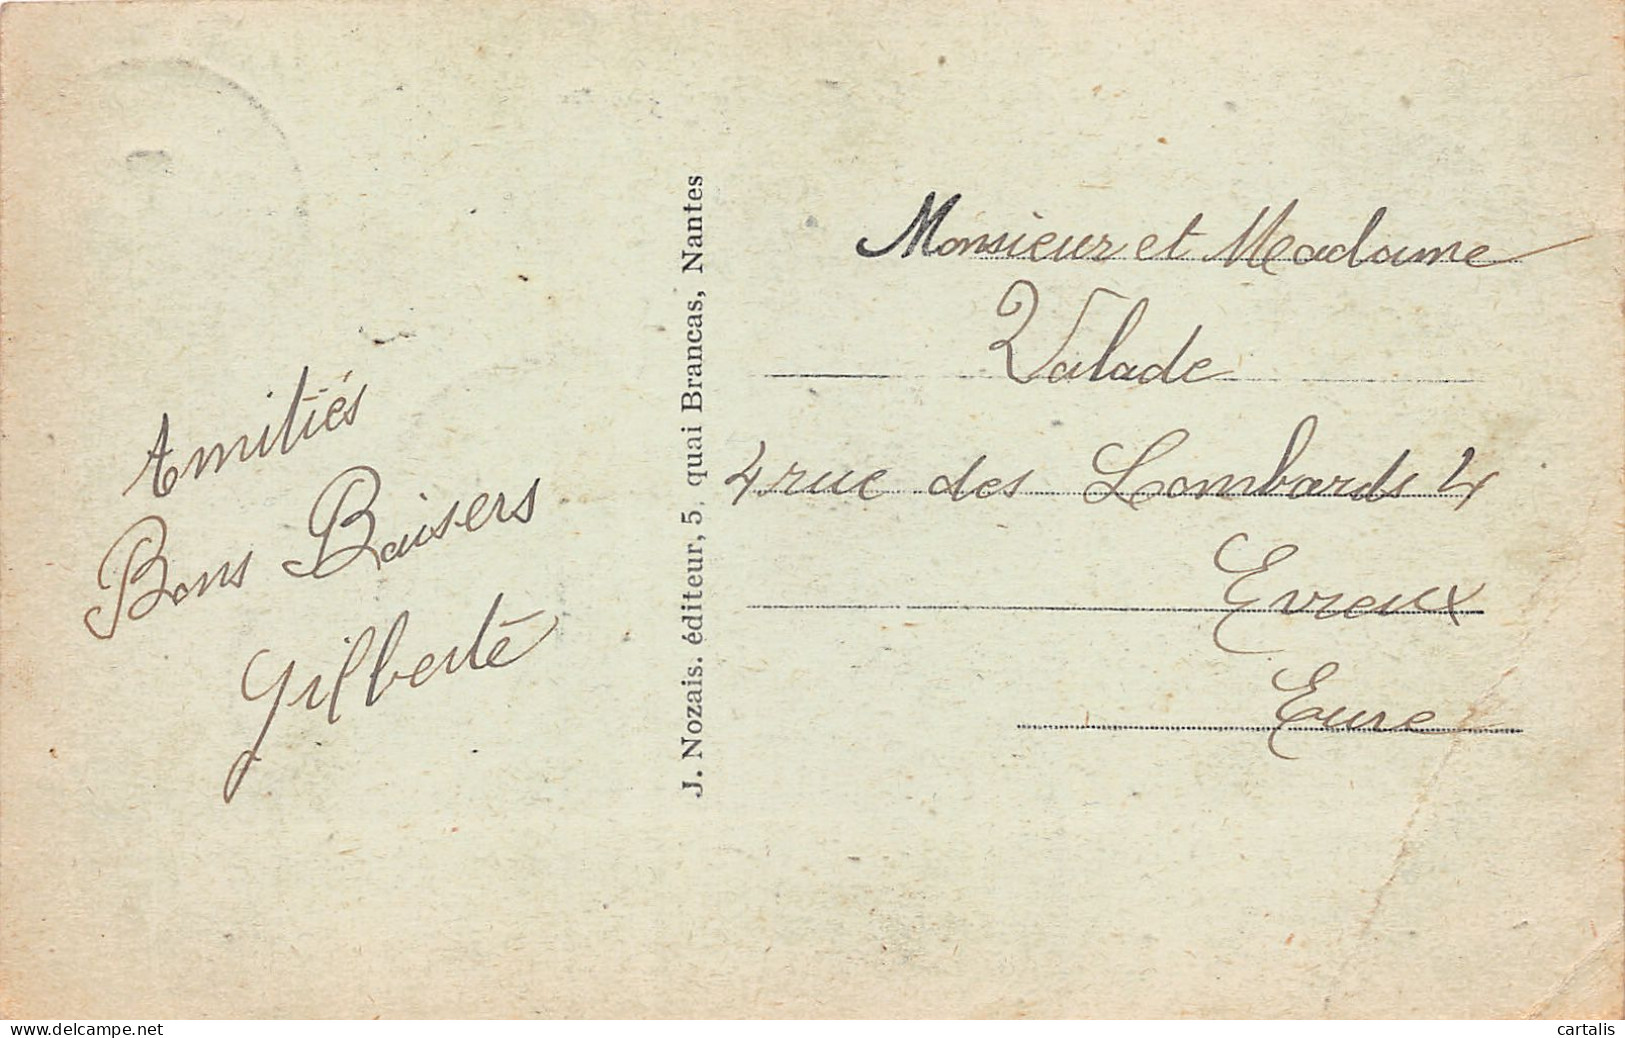 Amitiés
Bons Baisers
Gilberte
J. Nozais. éditeur, 5, quai Brancas, Nantes
Monsieur et Madame
Valade
4 rue des Lombards 4
Evreux
Eure
www.delcampe.net
cartalis